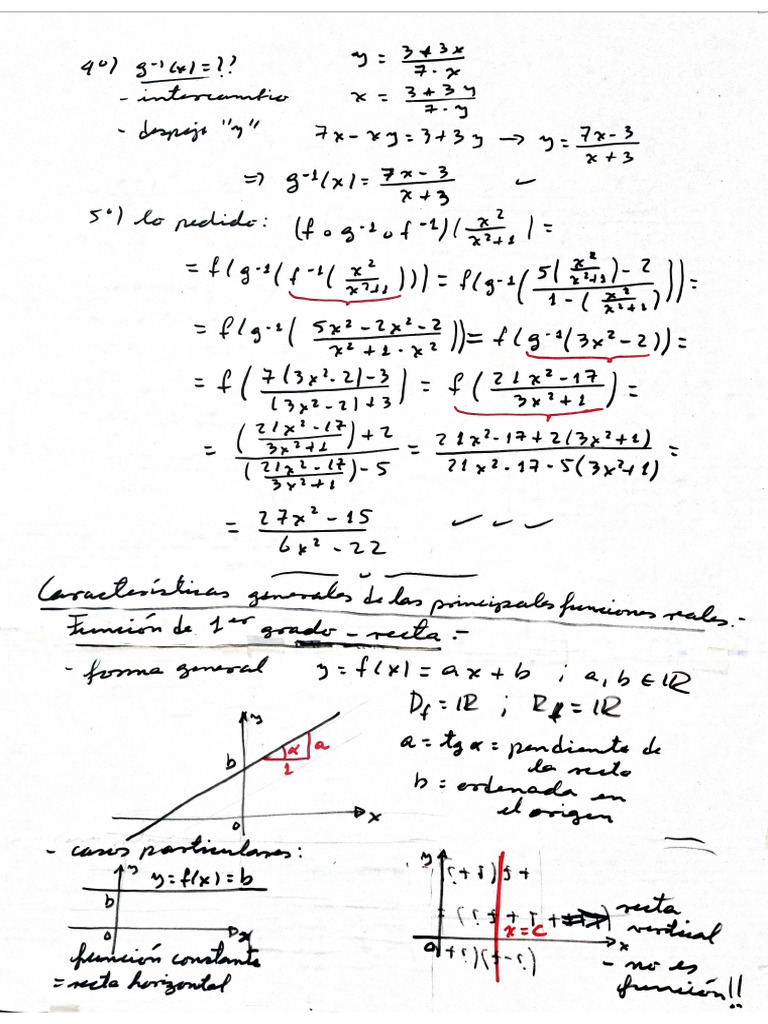 4º) g⁻¹(x) = ??
y = (3+3x)/(7-x)
- intercambio
x = (3+3y)/(7-y)
- despejo "y"
7x - xy = 3+3y → y = (7x-3)/(x+3)
⇒ g⁻¹(x) = (7x-3)/(x+3) ✓
5º) lo pedido: (f∘g⁻¹∘f⁻¹)(x²/(x²+1)) =
= f(g⁻¹(f⁻¹(x²/(x²+1)))) = f(g⁻¹((5(x²/(x²+1))-2)/(1-(x²/(x²+1))))) =
= f(g⁻¹((5x²-2x²-2)/(x²+1-x²))) = f(g⁻¹(3x²-2)) =
= f((7(3x²-2)-3)/((3x²-2)+3)) = f((21x²-17)/(3x²+1)) =
= (((21x²-17)/(3x²+1))+2)/(((21x²-17)/(3x²+1))-5) = (21x²-17+2(3x²+1))/(21x²-17-5(3x²+1)) =
= (27x²-15)/(6x²-22) ✓ ✓ ✓
Características generales de las principales funciones reales.-
Función de 1er grado - recta.-
- forma general y = f(x) = ax + b ; a, b ∈ ℝ
Df = ℝ ; Rf = ℝ
a = tg α = pendiente de
la recta
b = ordenada en
el origen
y
b
α
a
1
0
x
- casos particulares:
y
y = f(x) = b
b
0
x
función constante
= recta horizontal
y
x = c
0
x
recta
vertical
- no es
función!!